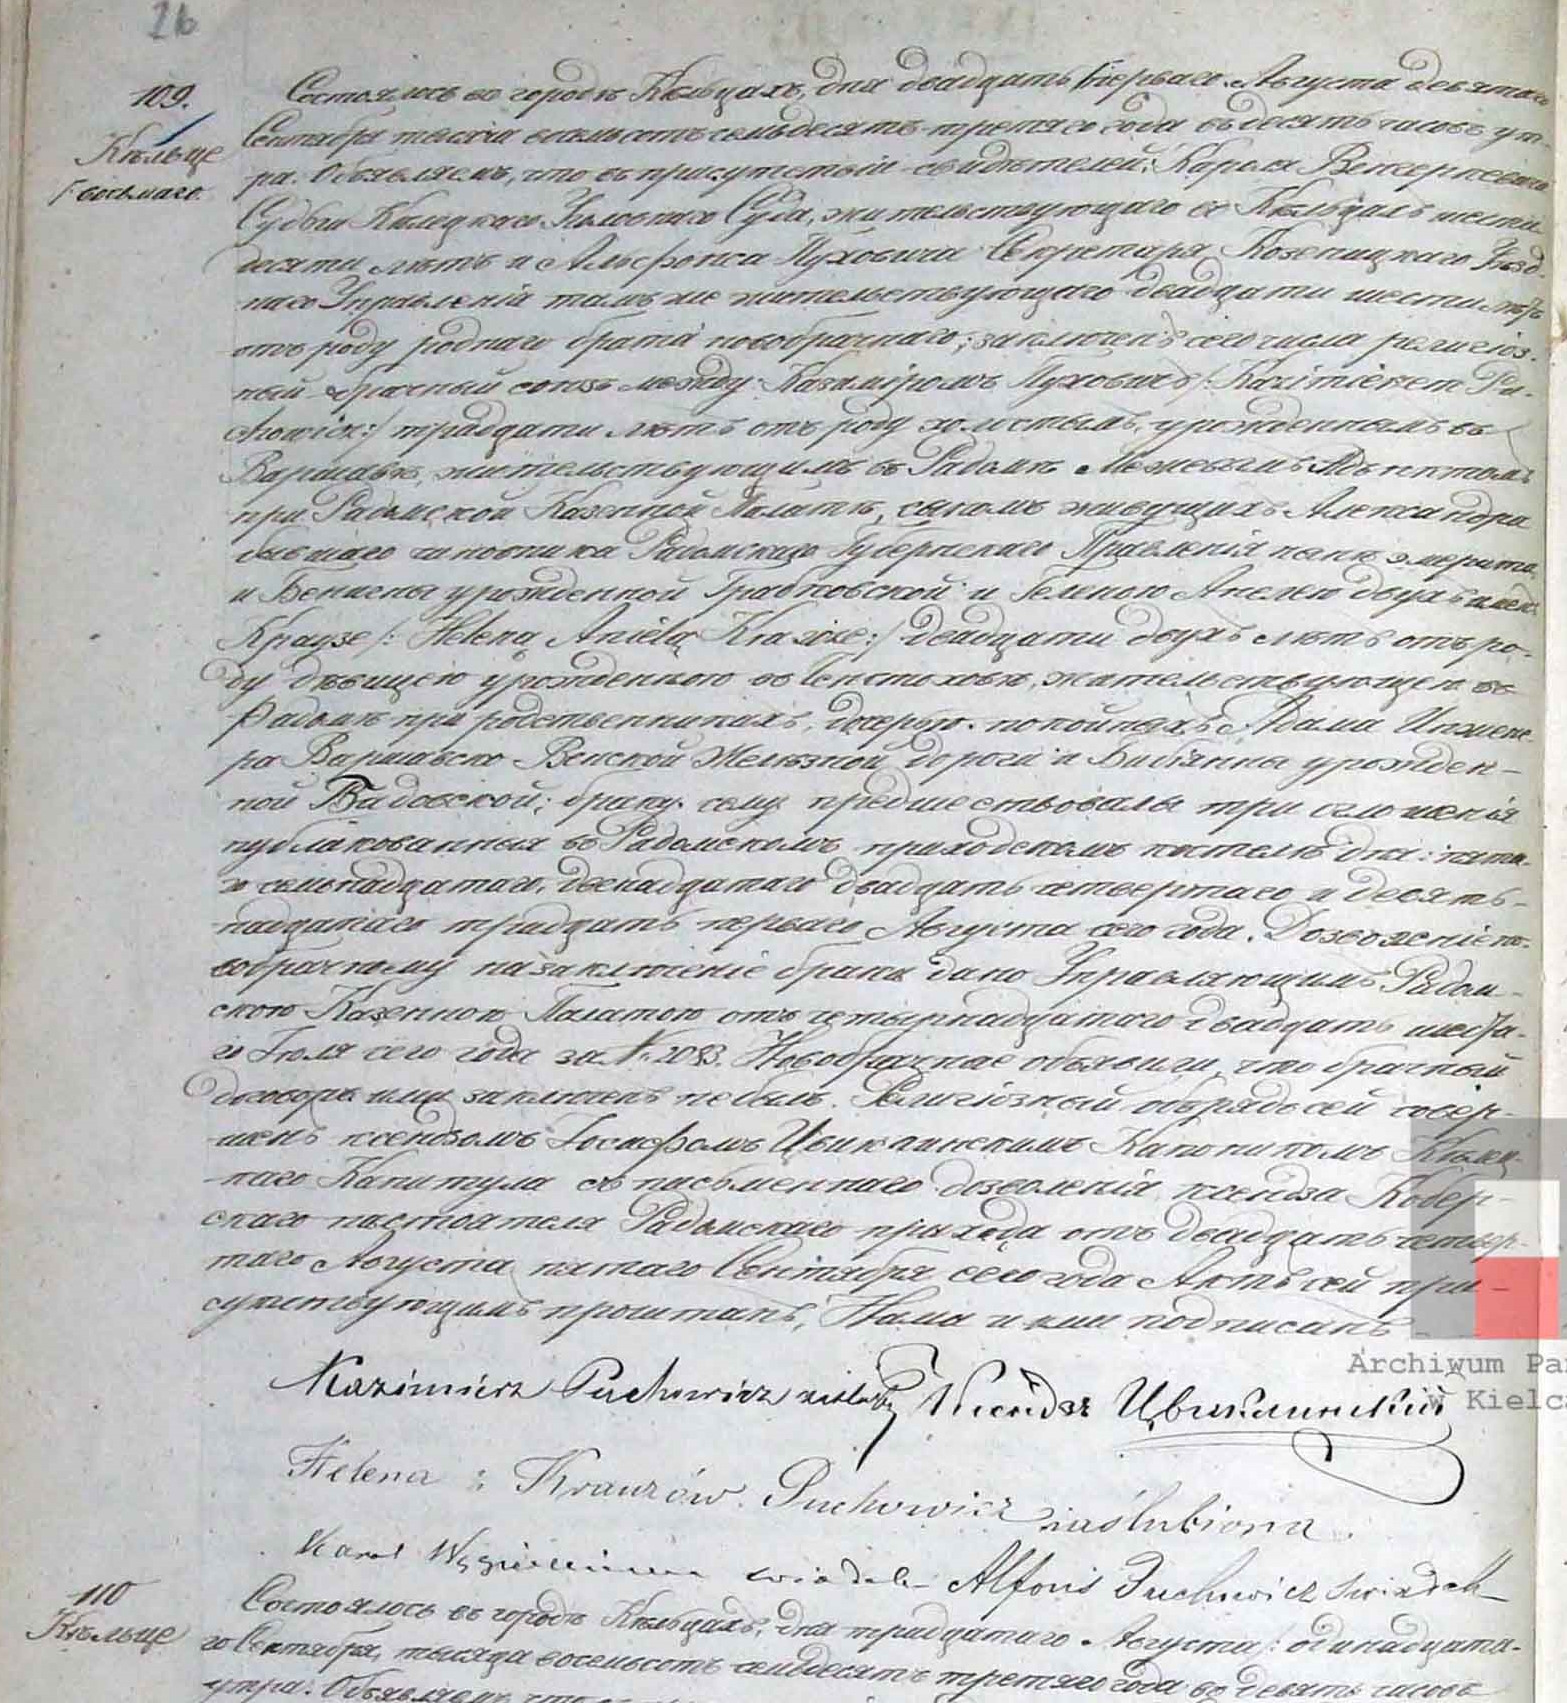 26
109.
Кѣльце
/: восьмаго.
Состоялось въ городѣ Кѣльцахъ, дня двадцать /: перваго Августа девятаго
Сентября тысяча восемьсотъ семьдесятъ третяго года въ десять часовъ ут-
ра. Объявляемъ, что въ присутствіи свидѣтелей: Кароля
Судьи Кѣлецкаго Суда, жительствующаго въ Кѣльцахъ шести
десяти лѣтъ и Альфонса Пуховича Секретаря Козеницкаго Уѣзд-
наго Управленія тамъ же жительствующаго двадцати шести лѣтъ
отъ роду роднаго брата новобрачнаго; заключенъ сего числа религіоз-
ный брачный союзъ между: Казимiромъ Пуховичъ /: Kazimierzem Pu-
chowicz :/ тридцати лѣтъ отъ роду холостымъ, урожденнымъ въ
Варшавѣ, жительствующимъ въ Радомѣ Межевымъ
при Радомской Казенной Палатѣ, сыномъ живущихъ Александра
бывшаго чиновника Радомскаго Губернскаго Правленія нынѣ эмерита
и урожденной Грабковской и Геленою Анелею двухъ именъ
Краузе /: Heleną Anielą Krauze :/ двадцати двухъ лѣтъ отъ ро-
ду дѣвицею урожденною въ Ченстоховѣ, жительствующею въ
Радомѣ при родственникахъ, дочерью покойныхъ Адама Инжене-
ра Варшавско-Венской Желѣзной дороги и Бибіанны урожден-
ной Бадовской; браку сему предшествовали три оглашенія
публикованныя въ Радомскомъ приходскомъ костелѣ дня: пята-
го семнадцатаго, двенадцатаго двадцать четвертаго и девять-
надцатаго тридцать перваго Августа сего года. Дозволеніе но-
вобрачному на заключеніе брака дано Управляющимъ Радом-
скою Казенною Палатою отъ четырнадцатаго двадцать шеста-
го Іюля сего года за №. Новобрачные объявили, что брачный
договоръ ими заключенъ не былъ. Религіозный обрядъ сей совер-
шенъ ксендзомъ Іосифомъ Цвиклинскимъ Каноникомъ Кѣлец-
каго Капитула съ письменнаго дозволенія ксендза Кобер-
скаго настоятеля Радомскаго прихода отъ двадцать четвер-
таго Августа пятаго Сентября сего года Актъ сей при-
сутствующимъ прочитанъ, Нами и ими подписанъ
Kazimierz Puchowicz Ксендзъ Цвиклинскій
Helena z Krauzów Puchowicz zaślubiona.
Karol świadek Alfons Puchowicz świadek
110
Кѣльце
Состоялось въ городѣ Кѣльцахъ, дня тридцатаго Августа /: одинадцата-
го Сентября, тысяча восемьсотъ семьдесятъ третяго года въ девять часовъ
утра. Объявляемъ, что
Archiwum Pa
w Kielca